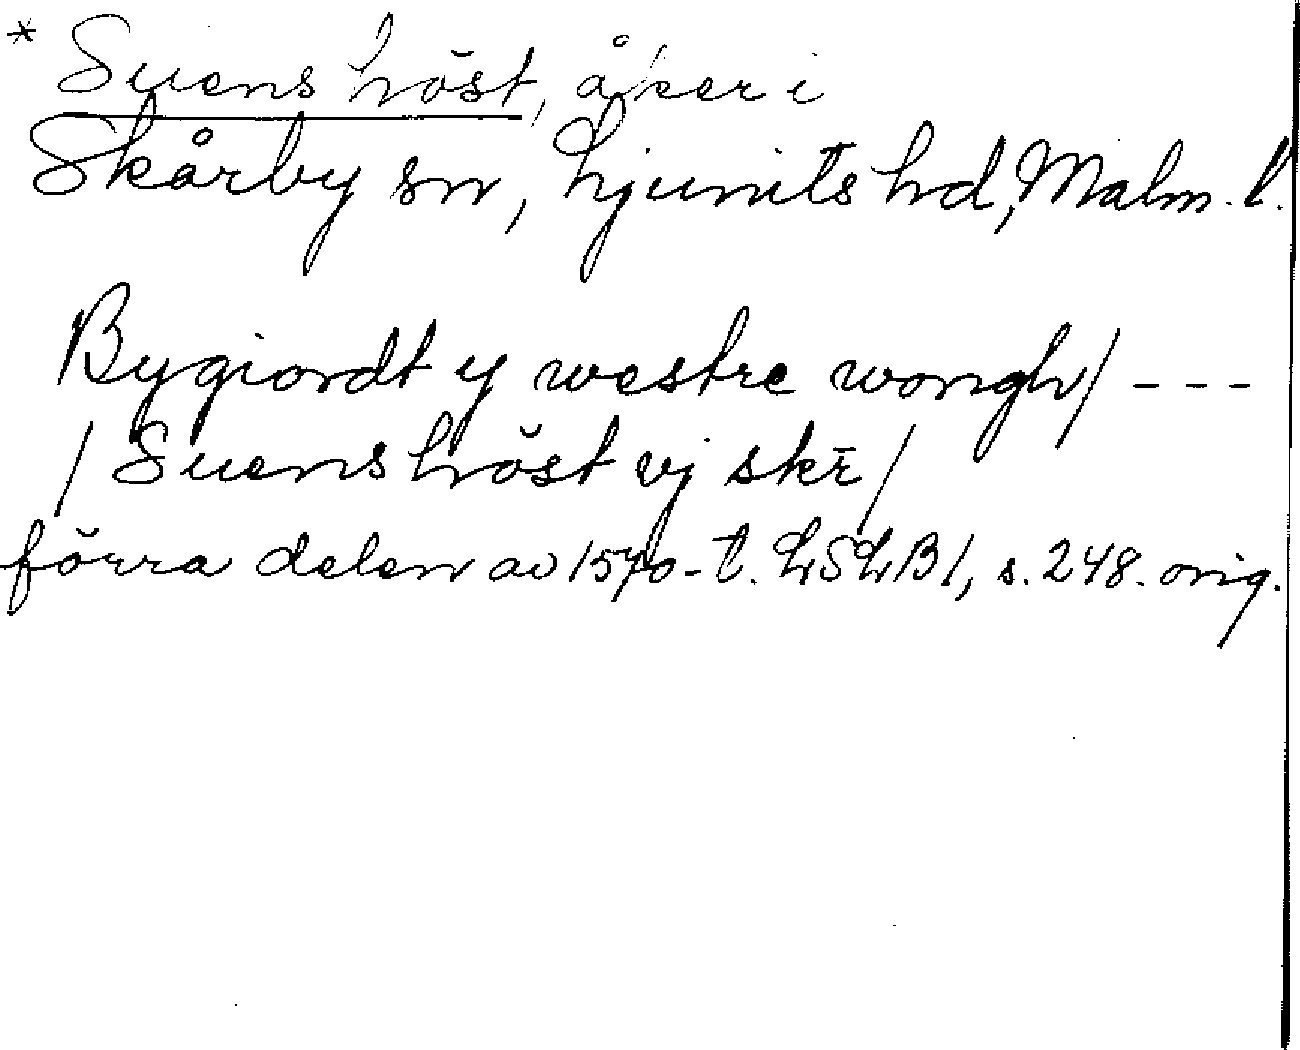 * Suens höst, åker i
Skårby sn, Ljunits hd, Malm. l.
Bygiordt y westre wongh/ - - -
/ Suens höst vj skr̄ /
förra delen av 1570-t. LSLB1, s. 248. orig.